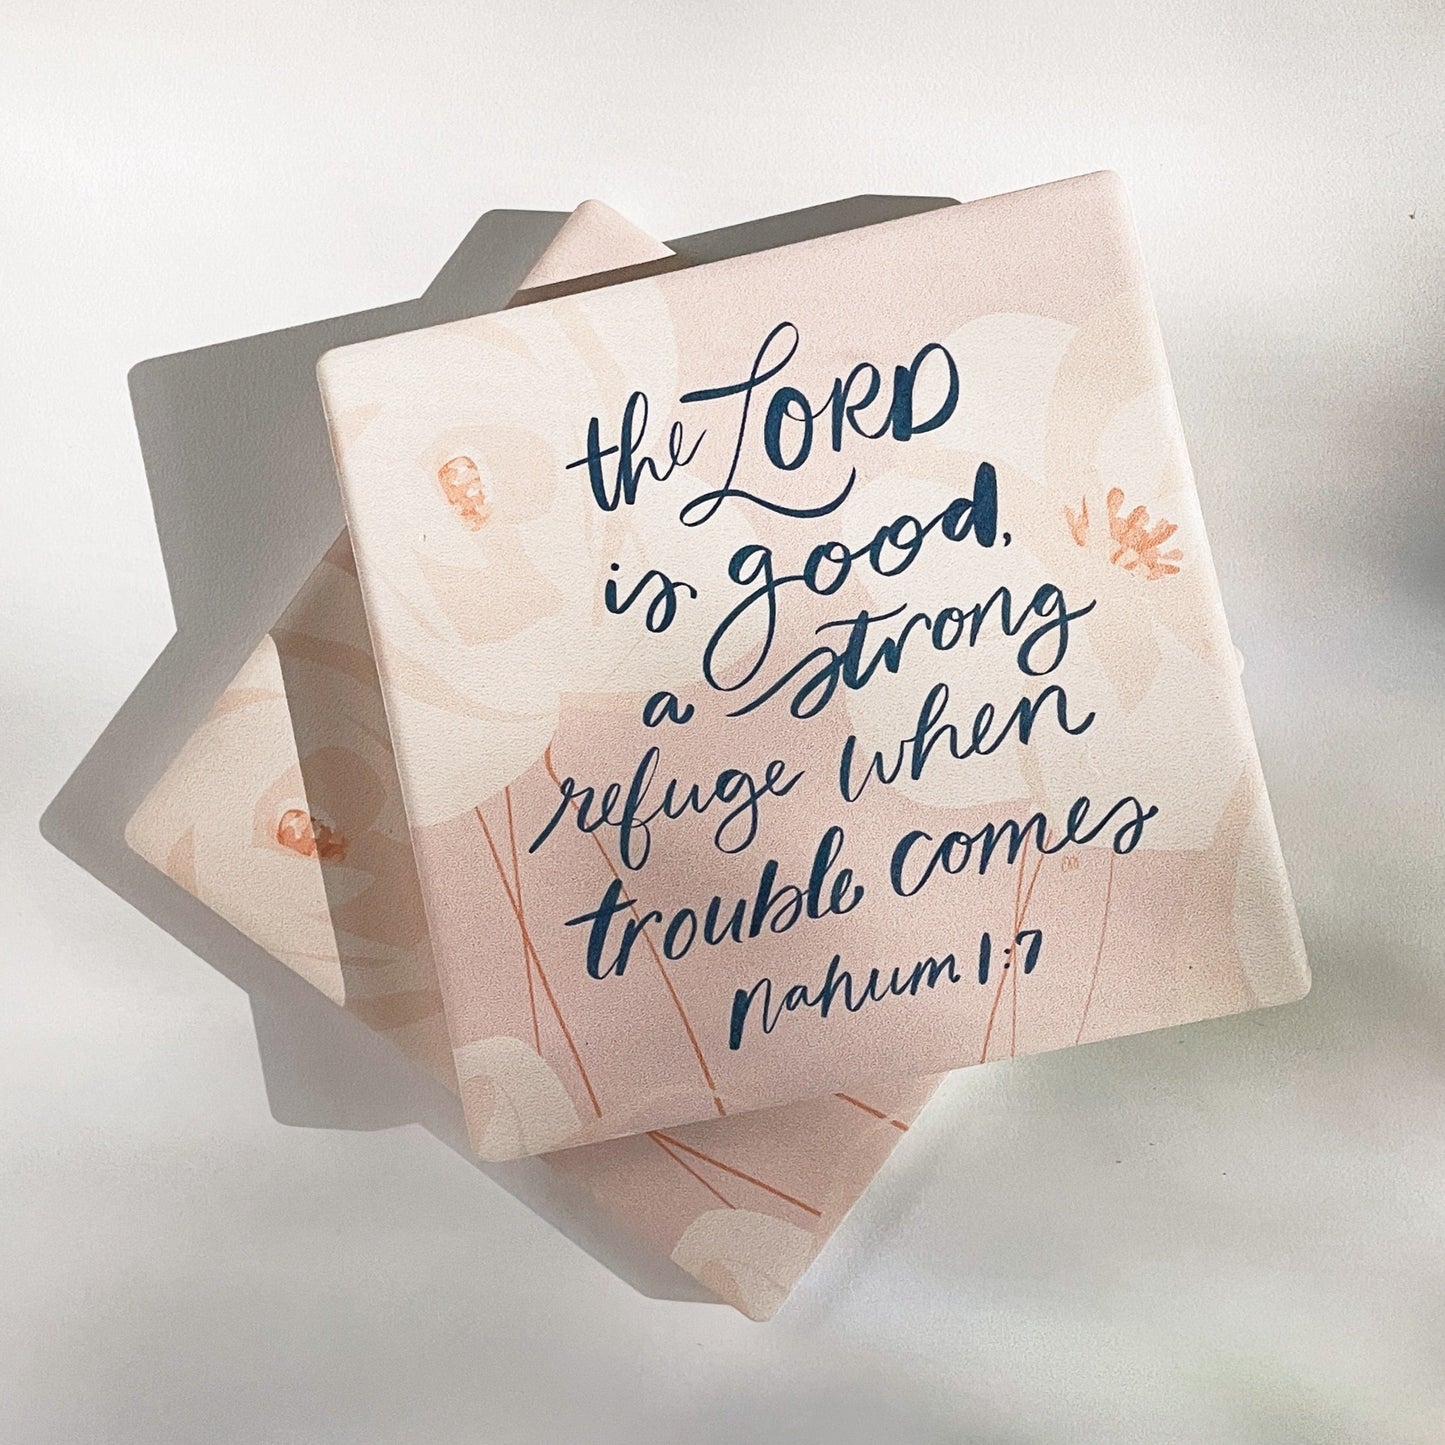 the LORD
is good,
a strong
refuge when
trouble comes
nahum 1:7